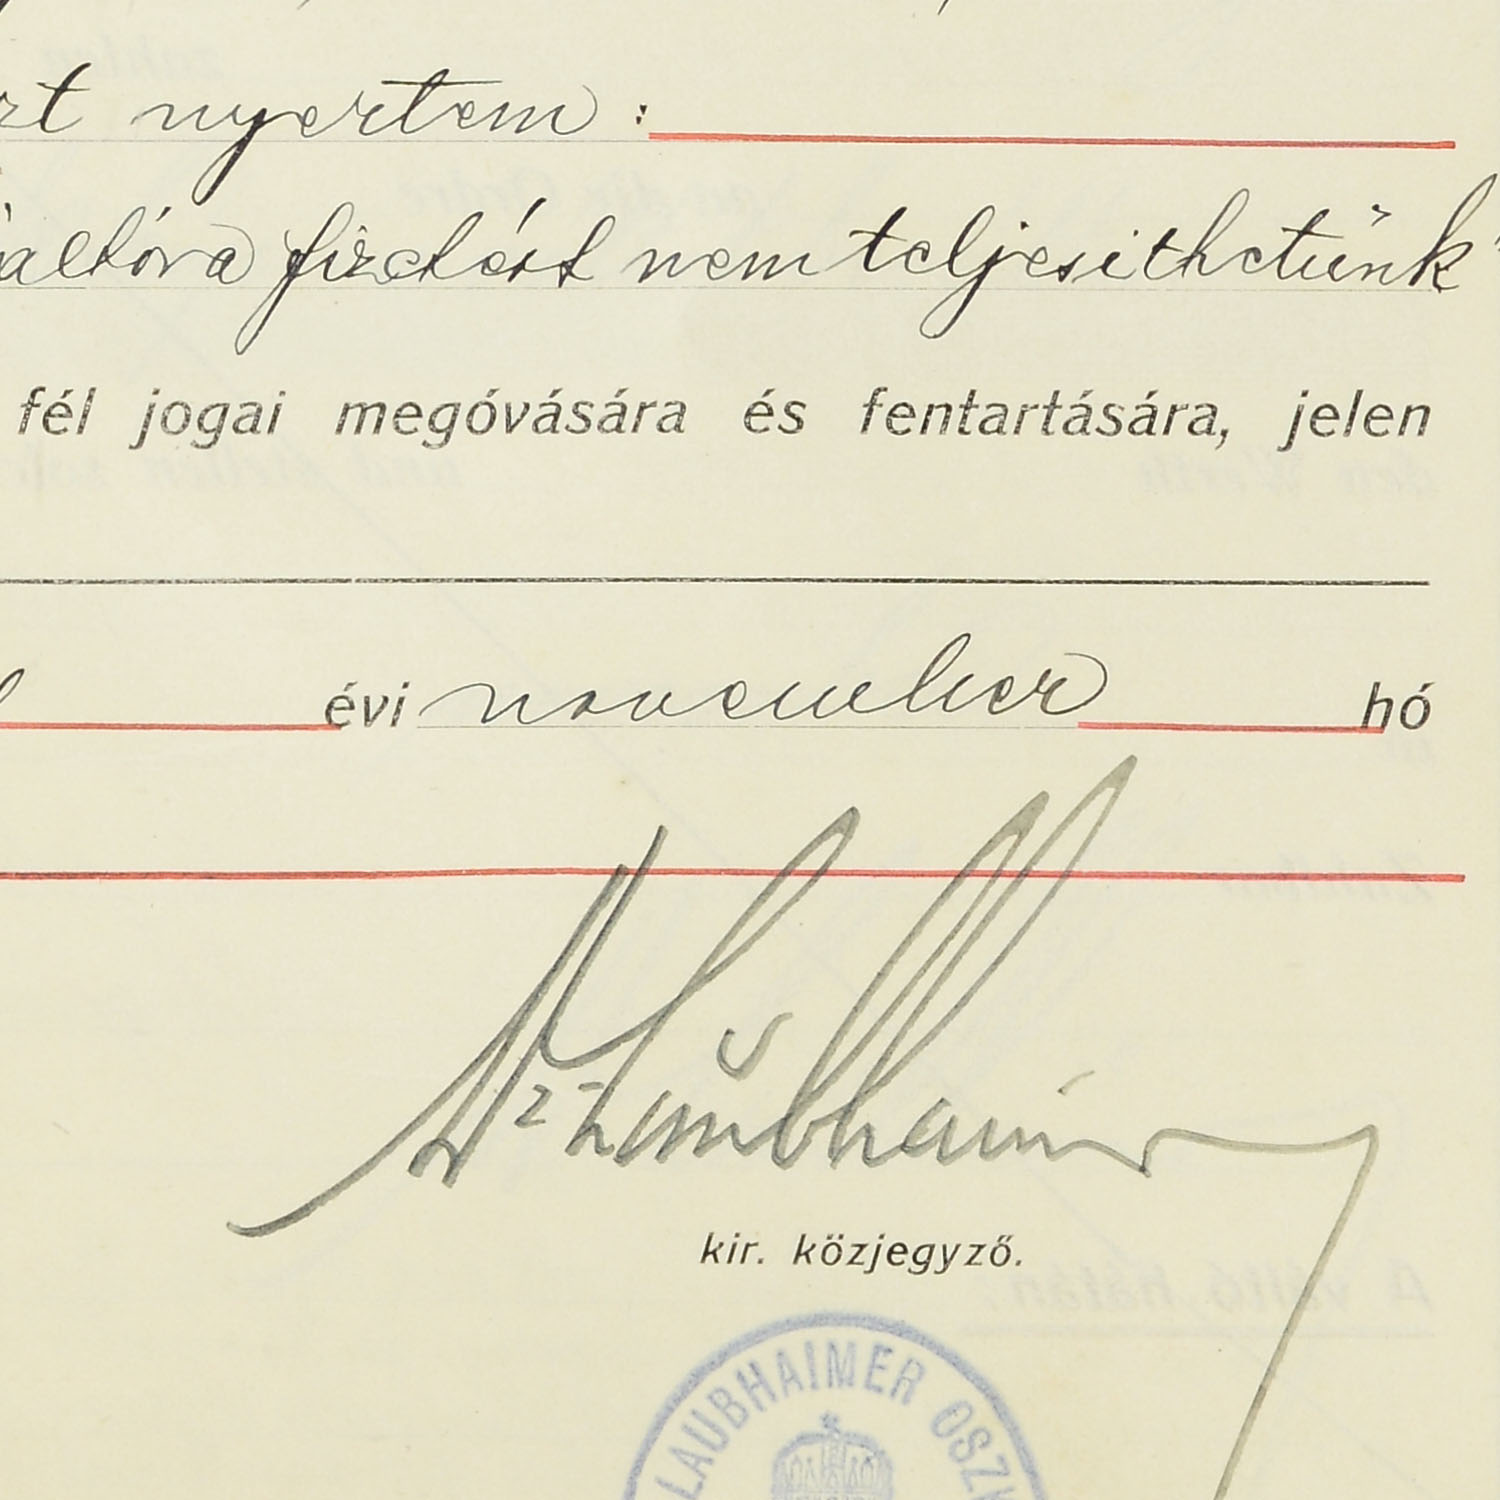 nyertem :
váltóra fizetést nem teljesithetünk"
fél jogai megóvására és fentartására, jelen
évi november hó
Laubhaimer
kir. közjegyző.
LAUBHAIMER OSZK